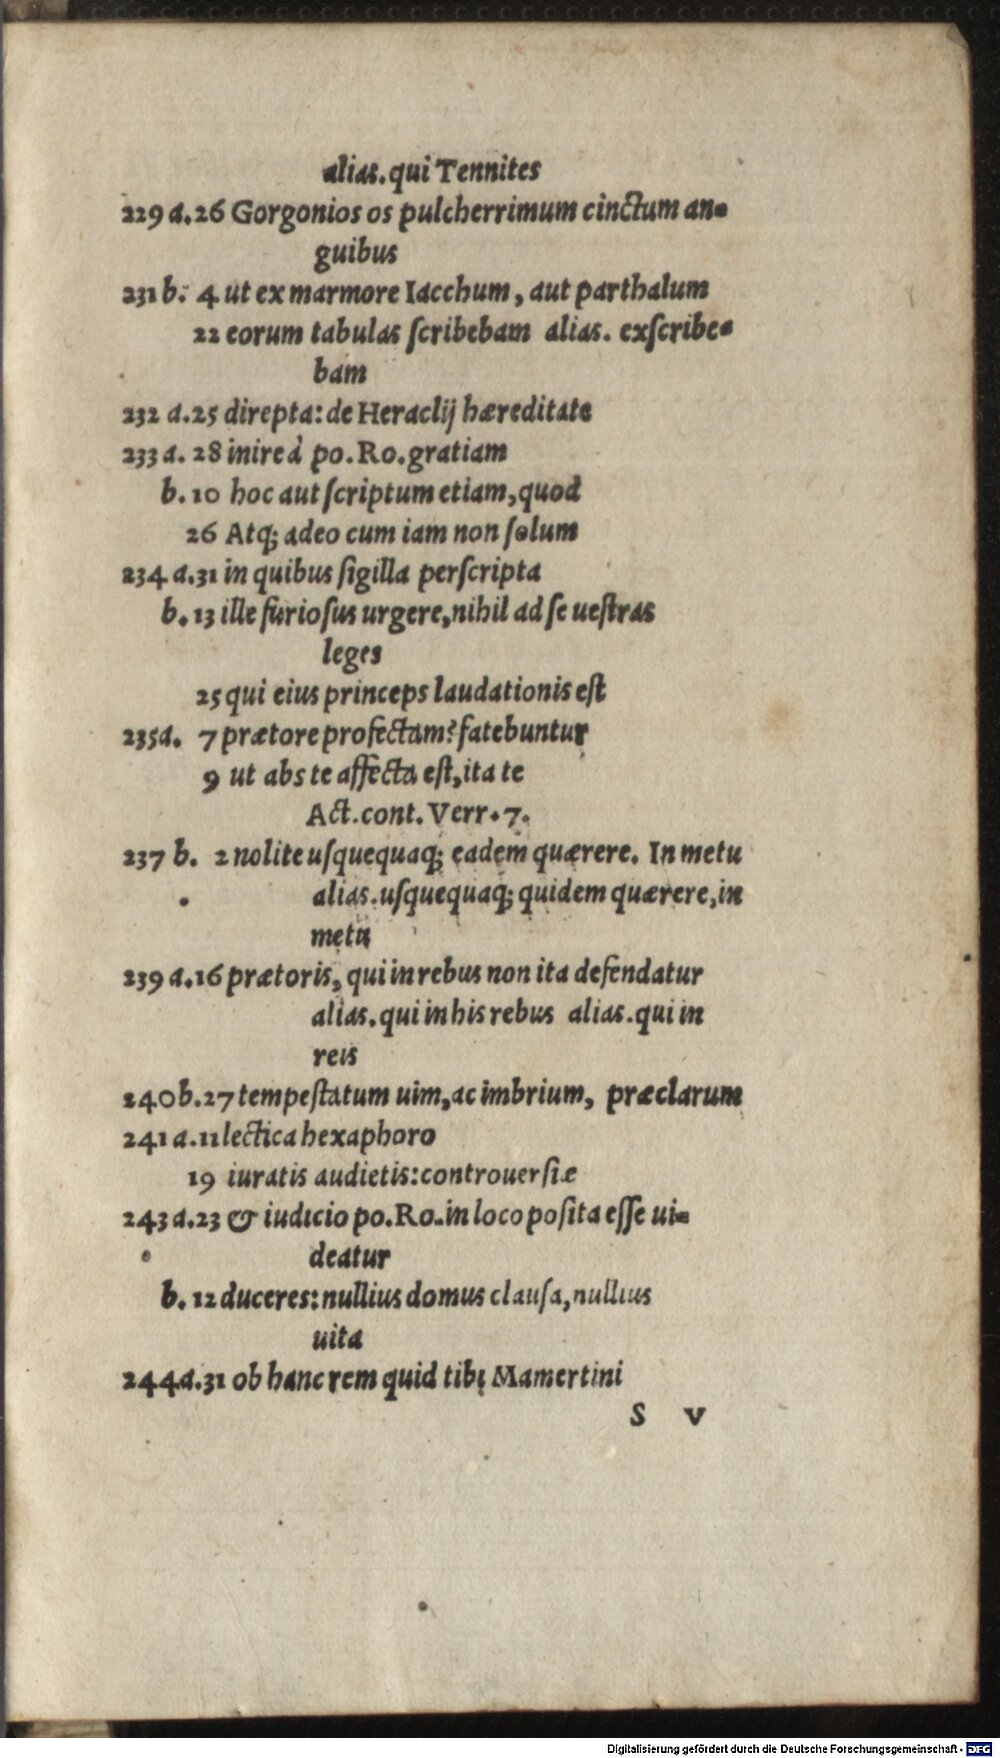 alias. qui Tennites
229 a. 26 Gorgonios os pulcherrimum cinctum an-
guibus
231 b. 4 ut ex marmore Iacchum, aut parthalum
22 eorum tabulas ſcribebam alias. exſcribe-
bam
232 a. 25 direpta: de Heraclij hæreditate
233 a. 28 inire à po. Ro. gratiam
b. 10 hoc aut ſcriptum etiam, quod
26 Atq; adeo cum iam non ſolum
234 a. 31 in quibus ſigilla perſcripta
b. 13 ille furioſus urgere, nihil ad ſe ueſtras
leges
25 qui eius princeps laudationis eſt
235 a. 7 prætore profectam? fatebuntur
9 ut abs te affecta eſt, ita te
Act. cont. Verr. 7.
237 b. 2 nolite uſquequaq; eadem quærere. In metu
alias. uſquequaq; quidem quærere, in
metu
239 a. 16 prætoris, qui in rebus non ita defendatur
alias. qui in his rebus alias. qui in
reis
240 b. 27 tempeſtatum uim, ac imbrium, præclarum
241 a. 11 lectica hexaphoro
19 iuratis audietis: controuerſiæ
243 a. 23 & iudicio po. Ro. in loco poſita eſſe ui-
deatur
b. 12 duceres: nullius domus clauſa, nullius
uita
244 a. 31 ob hanc rem quid tibi Mamertini
S V
Digitalisierung gefördert durch die Deutsche Forschungsgemeinschaft - DFG